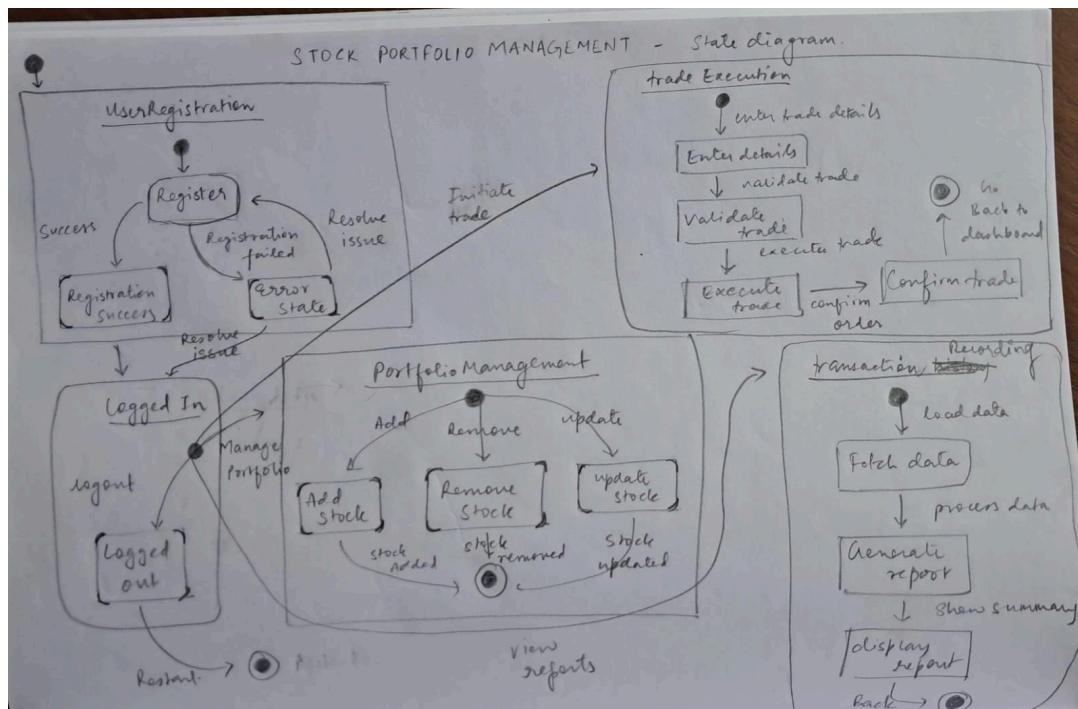 STOCK PORTFOLIO MANAGEMENT - State diagram.
UserRegistration
Register
Success
Registration
failed
Resolve
issue
Registration
Success
Error
State
Resolve
issue
Logged In
logout
Logged
out
Restart
Manage
Portfolio
Initiate
trade
Portfolio Management
Add
Remove
update
Add
Stock
Remove
Stock
update
Stock
Stock
Added
stock
removed
Stock
updated
view
reports
trade Execution
enter trade details
Enter details
validate trade
Validate
trade
execute trade
Execute
trade
confirm
order
Confirm trade
Go
Back to
dashboard
transaction Recording
load data
Fetch data
process data
Generate
report
Show summary
display
report
Back